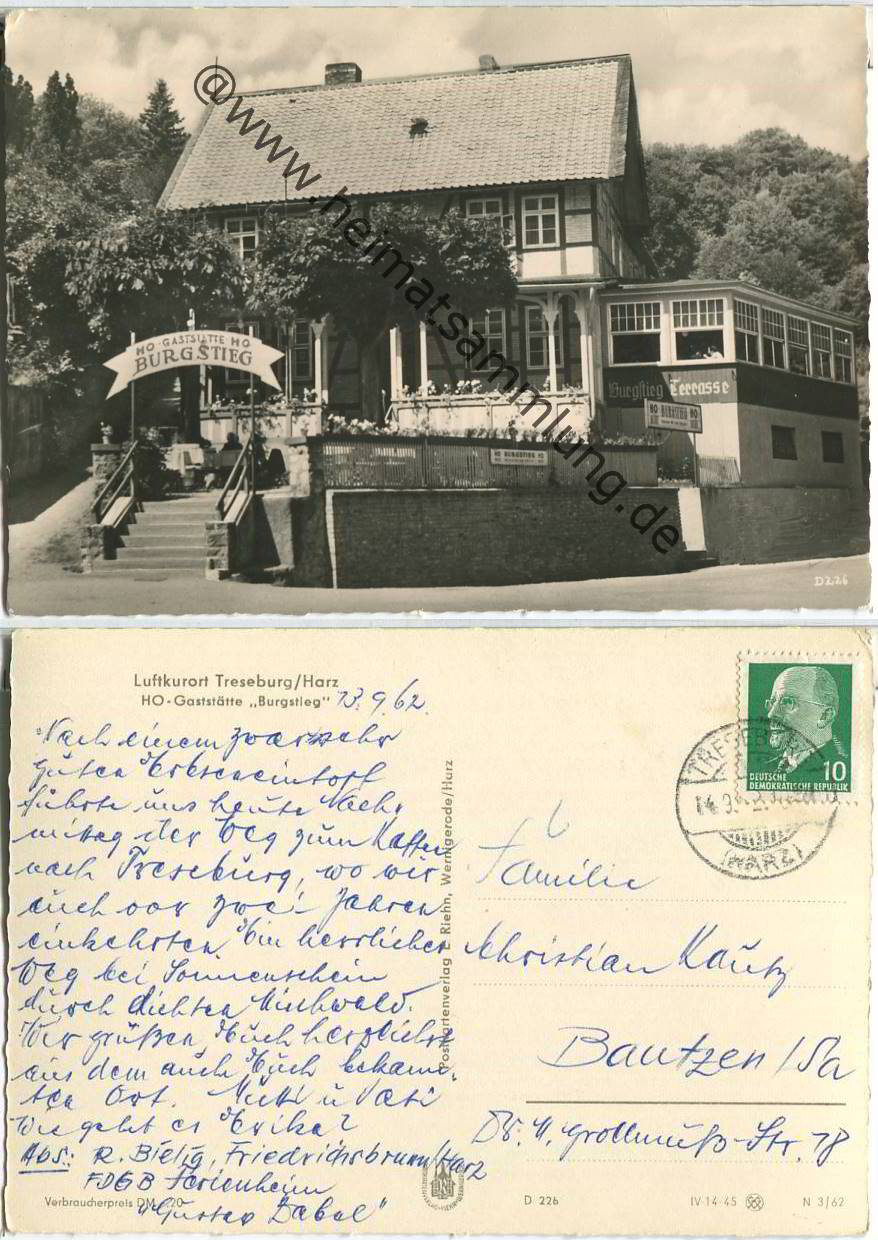 @www.heimatsammlung.de
HO-GASTSTÄTTE HO
BURGSTIEG
Burgstieg Terrasse
HO BURGSTIEG HO
HO BURGSTIEG HO
D226
Luftkurort Treseburg/Harz
HO-Gaststätte „Burgstieg" 13.9.62.
Nach einem zwar sehr
guten Erbseneintopf
führte uns heute Nach-
mittag der Weg zum Kaffee
nach Treseburg, wo wir
auch vor zwei Jahren
einkehrten. Ein herrlicher
Weg bei Sonnenschein
durch dichten Mischwald.
Wir grüßen Euch herzlichst
aus dem auch Euch bekann-
ten Ort. Mutti u Vati
Wie geht es Erika?
Abs.: R. Bielig, Friedrichsbrunn/Harz
FDGB Ferienheim
"Gustav Dabel"
Verbraucherpreis DM 0,20
Postkartenverlag E. Riehn, Wernigerode/Harz
DEUTSCHE
DEMOKRATISCHE REPUBLIK
10
TRESEBURG
(HARZ)
Familie
Christian Kautz
Bautzen/Sa
Dr. M. Grollmuß-Str. 78
D 226
IV-14-45
N 3/62